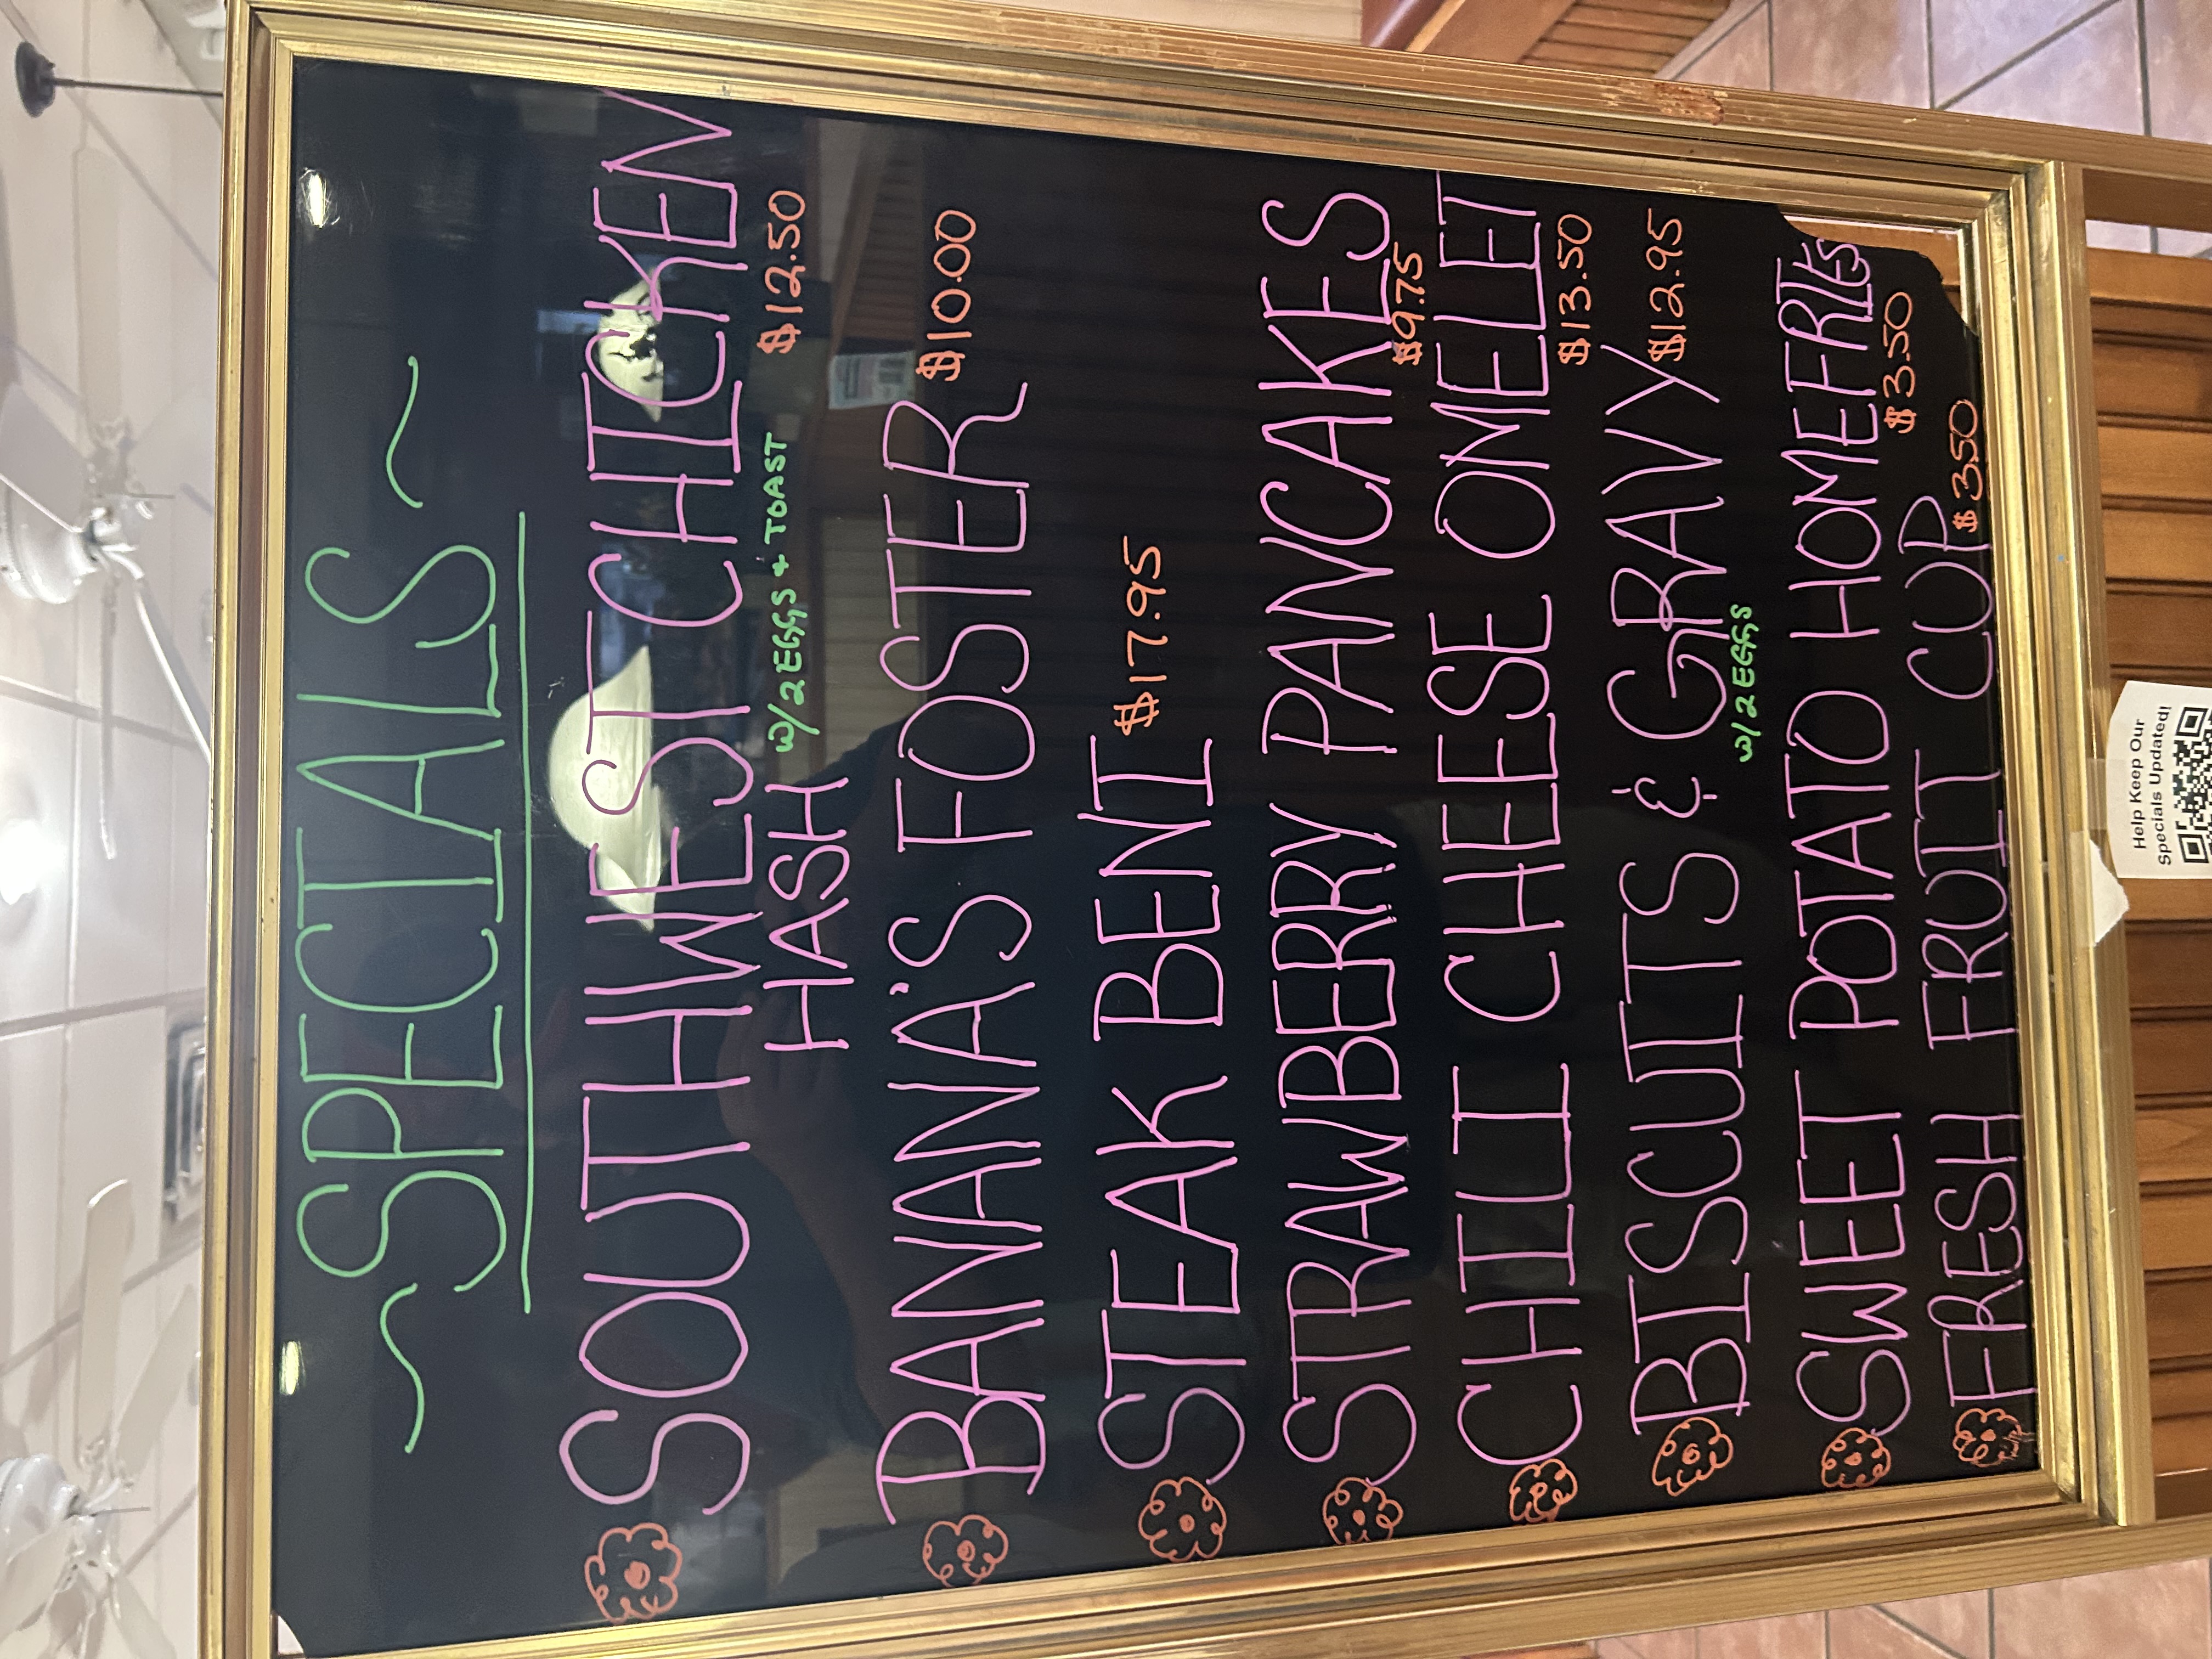 ~SPECIALS~
SOUTHWEST CHICKEN
HASH w/ 2 EGGS + TOAST $12.50
BANANA'S FOSTER $10.00
STEAK BENI $17.95
STRAWBERRY PANCAKES
$9.75
CHILI CHEESE OMELET
$13.50
BISCUITS & GRAVY $12.95
w/ 2 EGGS
SWEET POTATO HOMEFRIES
$3.50
FRESH FRUIT CUP $3.50
Help Keep Our
Specials Updated!